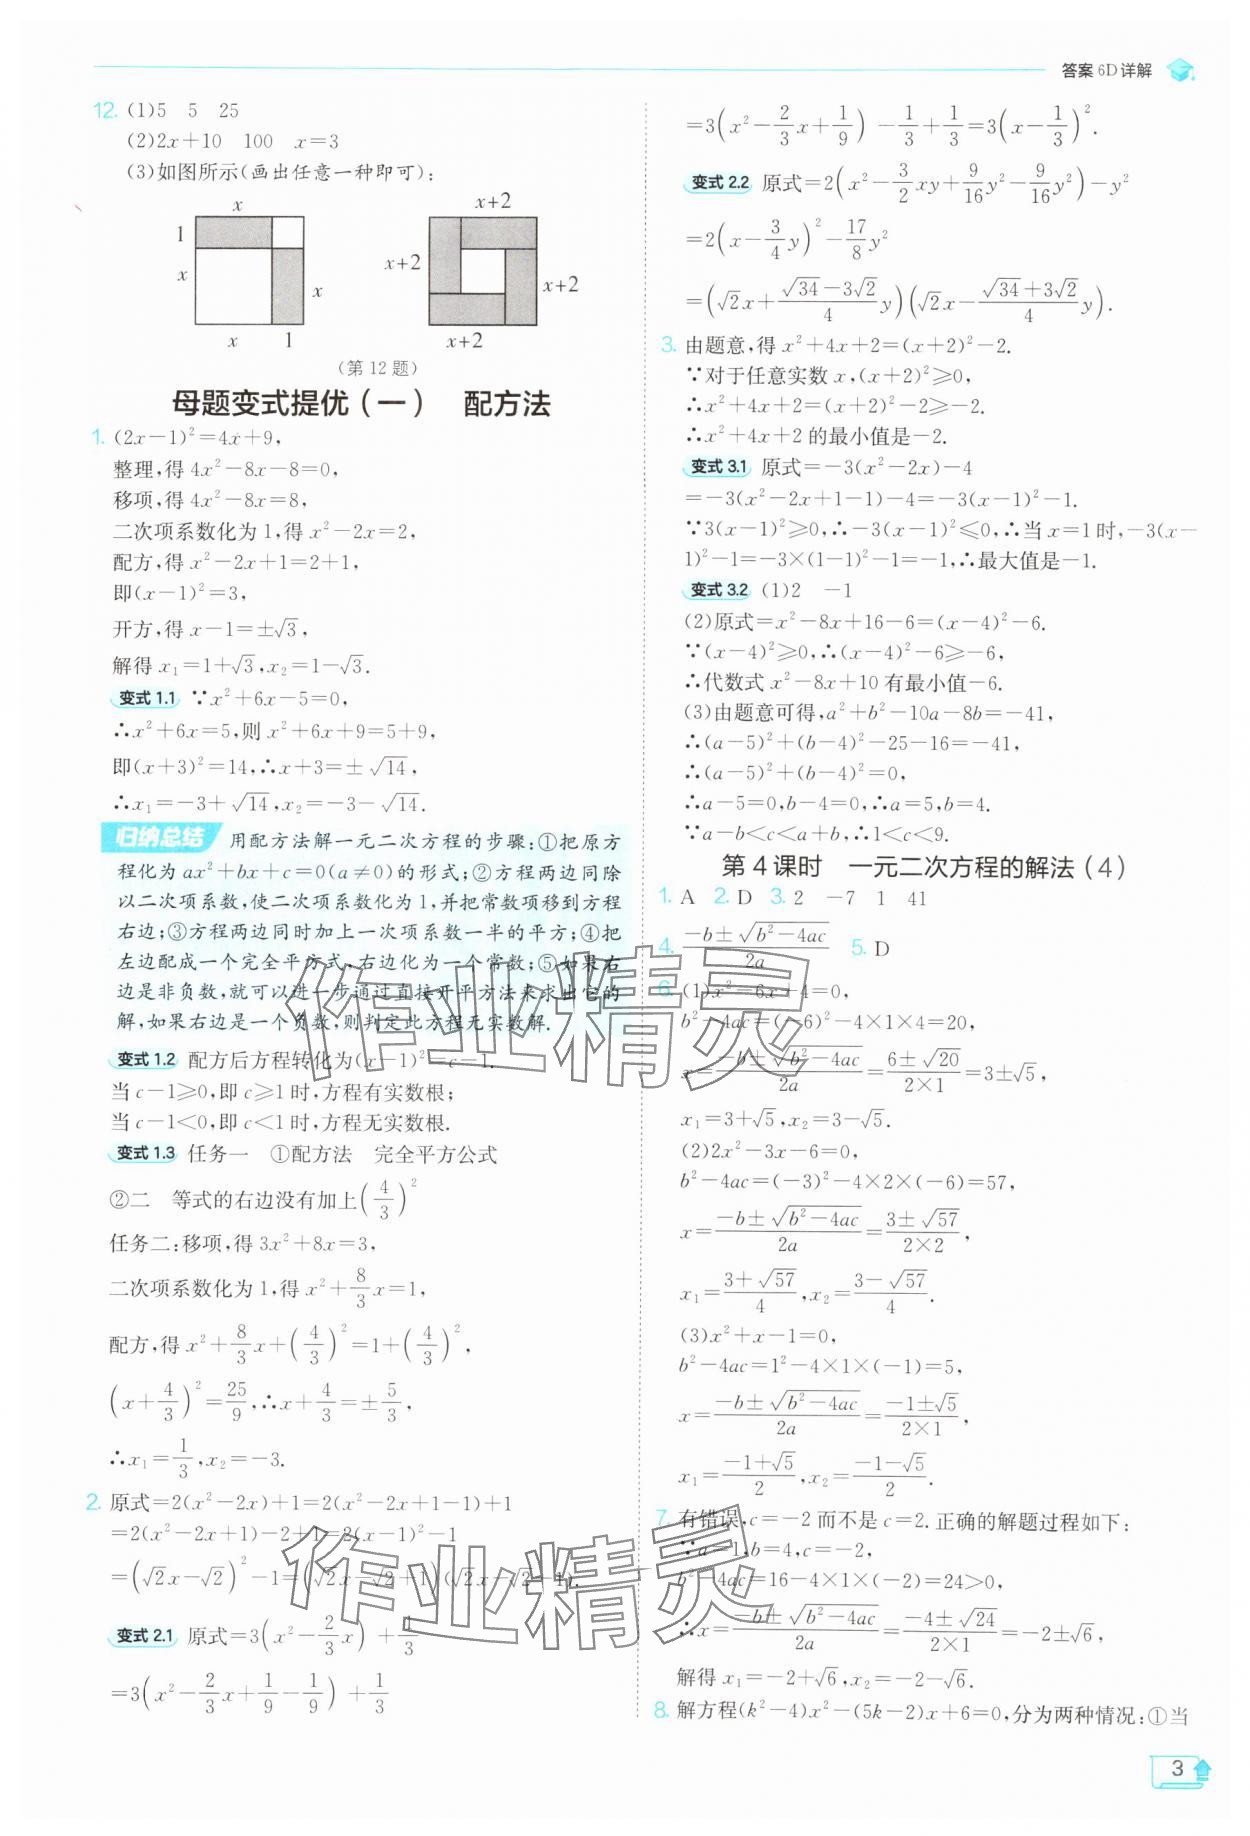 答案 6D 详解
12. (1)5 5 25
(2)2x+10 100 x=3
(3)如图所示(画出任意一种即可):
x
1
x
x
x 1
x+2
x+2
x+2
x+2
(第 12 题)
母题变式提优(一) 配方法
1. (2x-1)²=4x+9,
整理,得 4x²-8x-8=0,
移项,得 4x²-8x=8,
二次项系数化为 1,得 x²-2x=2,
配方,得 x²-2x+1=2+1,
即(x-1)²=3,
开方,得 x-1=±√3,
解得 x₁=1+√3,x₂=1-√3.
变式 1.1 ∵x²+6x-5=0,
∴x²+6x=5,则 x²+6x+9=5+9,
即(x+3)²=14,∴x+3=±√14,
∴x₁=-3+√14,x₂=-3-√14.
归纳总结 用配方法解一元二次方程的步骤:①把原方
程化为 ax²+bx+c=0(a≠0)的形式;②方程两边同除
以二次项系数,使二次项系数化为 1,并把常数项移到方程
右边;③方程两边同时加上一次项系数一半的平方;④把
左边配成一个完全平方式,右边化为一个常数;⑤如果右
边是非负数,就可以进一步通过直接开平方法来求出它的
解,如果右边是一个负数,则判定此方程无实数解.
变式 1.2 配方后方程转化为(x-1)²=c-1.
当 c-1≥0,即 c≥1 时,方程有实数根;
当 c-1<0,即 c<1 时,方程无实数根.
变式 1.3 任务一 ①配方法 完全平方公式
②二 等式的右边没有加上(4/3)²
任务二:移项,得 3x²+8x=3,
二次项系数化为 1,得 x²+8/3x=1,
配方,得 x²+8/3x+(4/3)²=1+(4/3)²,
(x+4/3)²=25/9,∴x+4/3=±5/3,
∴x₁=1/3,x₂=-3.
2. 原式=2(x²-2x)+1=2(x²-2x+1-1)+1
=2(x²-2x+1)-2+1=2(x-1)²-1
=(√2x-√2)²-1=(√2x-√2+1)(√2x-√2-1).
变式 2.1 原式=3(x²-2/3x)+1/3
=3(x²-2/3x+1/9-1/9)+1/3
=3(x²-2/3x+1/9)-1/3+1/3=3(x-1/3)².
变式 2.2 原式=2(x²-3/2xy+9/16y²-9/16y²)-y²
=2(x-3/4y)²-17/8y²
=(√2x+(√34-3√2)/4y)(√2x-(√34+3√2)/4y).
3. 由题意,得 x²+4x+2=(x+2)²-2.
∵对于任意实数 x,(x+2)²≥0,
∴x²+4x+2=(x+2)²-2≥-2.
∴x²+4x+2 的最小值是-2.
变式 3.1 原式=-3(x²-2x)-4
=-3(x²-2x+1-1)-4=-3(x-1)²-1.
∵3(x-1)²≥0,∴-3(x-1)²≤0,∴当 x=1 时,-3(x-
1)²-1=-3×(1-1)²-1=-1,∴最大值是-1.
变式 3.2 (1)2 -1
(2)原式=x²-8x+16-6=(x-4)²-6.
∵(x-4)²≥0,∴(x-4)²-6≥-6,
∴代数式 x²-8x+10 有最小值-6.
(3)由题意可得,a²+b²-10a-8b=-41,
∴(a-5)²+(b-4)²-25-16=-41,
∴(a-5)²+(b-4)²=0,
∴a-5=0,b-4=0,∴a=5,b=4.
∵a-b<c<a+b,∴1<c<9.
第 4 课时 一元二次方程的解法(4)
1. A 2. D 3. 2 -7 1 41
4. (-b±√(b²-4ac))/2a 5. D
6. (1)x²-6x+4=0,
b²-4ac=(-6)²-4×1×4=20,
x=(-b±√(b²-4ac))/2a=(6±√20)/(2×1)=3±√5,
x₁=3+√5,x₂=3-√5.
(2)2x²-3x-6=0,
b²-4ac=(-3)²-4×2×(-6)=57,
x=(-b±√(b²-4ac))/2a=(3±√57)/(2×2),
x₁=(3+√57)/4,x₂=(3-√57)/4.
(3)x²+x-1=0,
b²-4ac=1²-4×1×(-1)=5,
x=(-b±√(b²-4ac))/2a=(-1±√5)/(2×1),
x₁=(-1+√5)/2,x₂=(-1-√5)/2.
7. 有错误,c=-2 而不是 c=2.正确的解题过程如下:
∵a=1,b=4,c=-2,
b²-4ac=16-4×1×(-2)=24>0,
∴x=(-b±√(b²-4ac))/2a=(-4±√24)/(2×1)=-2±√6,
解得 x₁=-2+√6,x₂=-2-√6.
8. 解方程(k²-4)x²-(5k-2)x+6=0,分为两种情况:①当
3
作业精灵
作业精灵